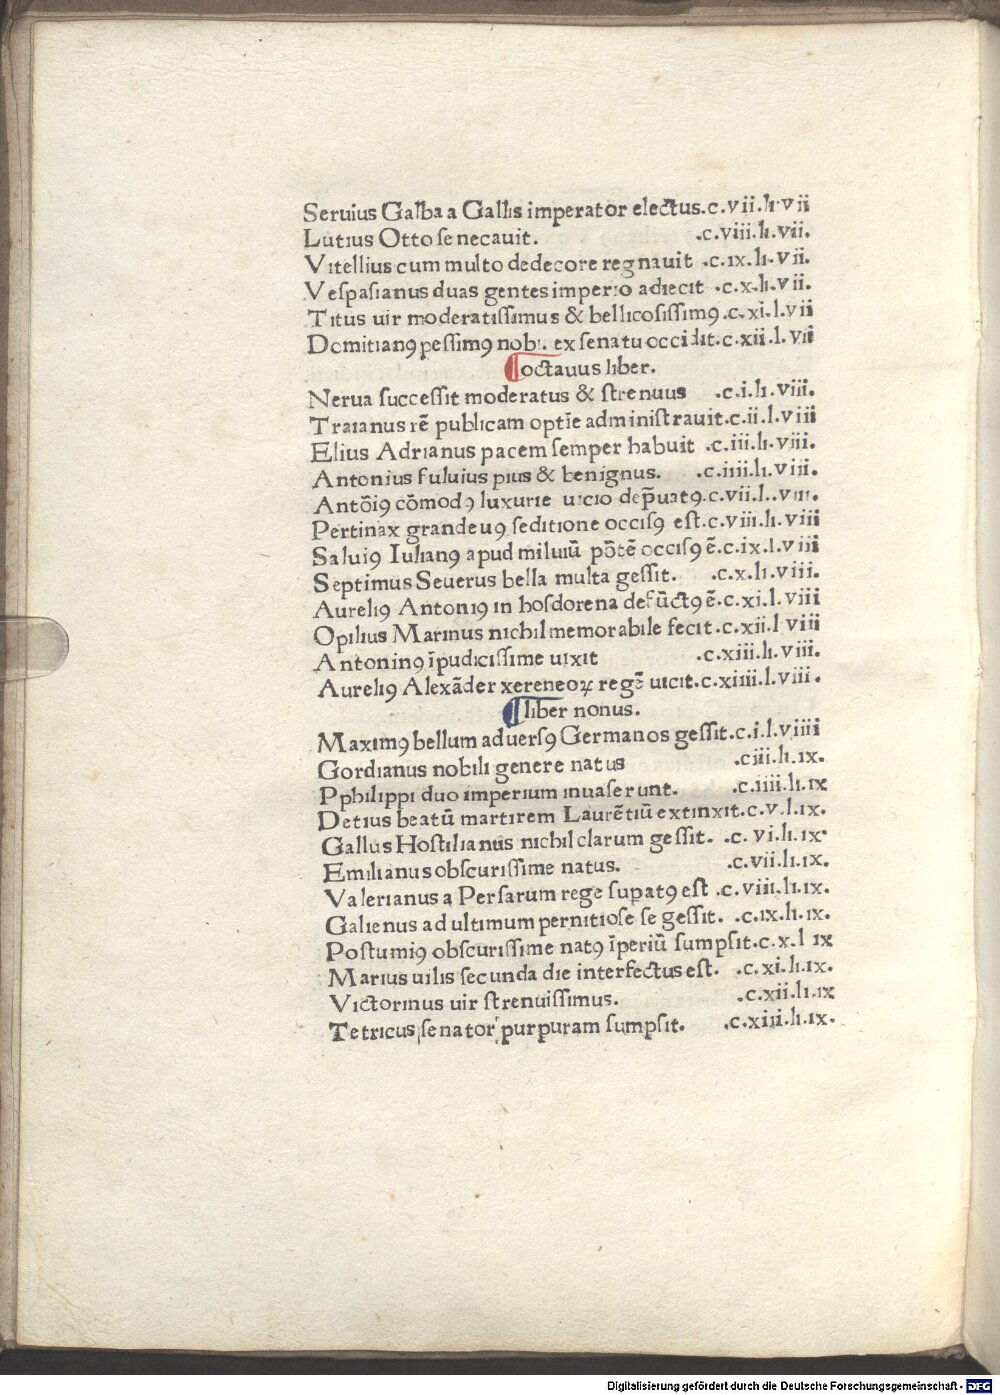 Seruius Galba a Gallis imperator electus.c.vii.li.vii
Lutius Otto se necauit. .c.viii.li.vii.
Vitellius cum multo dedecore regnauit .c.ix.li.vii.
Vespasianus duas gentes imperio adiecit .c.x.li.vii.
Titus uir moderatissimus & bellicosissimꝰ.c.xi.l.vii
Domitianꝰ pessimꝰ nobi. ex senatu occidit.c.xii.l.vii
¶octauus liber.
Nerua successit moderatus & strenuus .c.i.li.viii.
Traianus rē publicam optīe administrauit.c.ii.l.viii
Elius Adrianus pacem semper habuit .c.iii.li.viii.
Antonius fuluius pius & benignus. .c.iiii.li.viii.
Antōiꝰ cōmodꝰ luxurie uicio dep̄uatꝰ.c.vii.l..viii.
Pertinax grandeuꝰ seditione occisꝰ est.c.viii.li.viii
Saluiꝰ Iulianꝰ apud miluiū pōtē occisꝰ ē.c.ix.l.viii
Septimus Seuerus bella multa gessit. .c.x.li.viii.
Aureliꝰ Antoniꝰ in hosdorena defūctꝰ ē.c.xi.l.viii
Opilius Marinus nichil memorabile fecit.c.xii.l viii
Antoninꝰ īpudicissime uixit .c.xiii.li.viii.
Aureliꝰ Alexāder xereneoꝝ regē uicit.c.xiiii.l.viii.
¶liber nonus.
Maximꝰ bellum aduersꝰ Germanos gessit.c.i.l.viiii
Gordianus nobili genere natus .ciii.li.ix.
Pphilippi duo imperium inuaserunt. .c.iiii.li.ix
Detius beatū martirem Laurētiū extinxit.c.v.l.ix.
Gallus Hostilianus nichil clarum gessit. .c. vi.li.ix.
Emilianus obscurissime natus. .c.vii.li.ix.
Valerianus a Persarum rege supatꝰ est .c.viii.li.ix.
Galienus ad ultimum pernitiose se gessit. .c.ix.li.ix.
Postumiꝰ obscurissime natꝰ īperiū sumpsit.c.x.l ix
Marius uilis secunda die interfectus est. .c.xi.li.ix.
Victorinus uir strenuissimus. .c.xii.li.ix
Tetricus senator purpuram sumpsit. .c.xiii.li.ix.
Digitalisierung gefördert durch die Deutsche Forschungsgemeinschaft - DFG